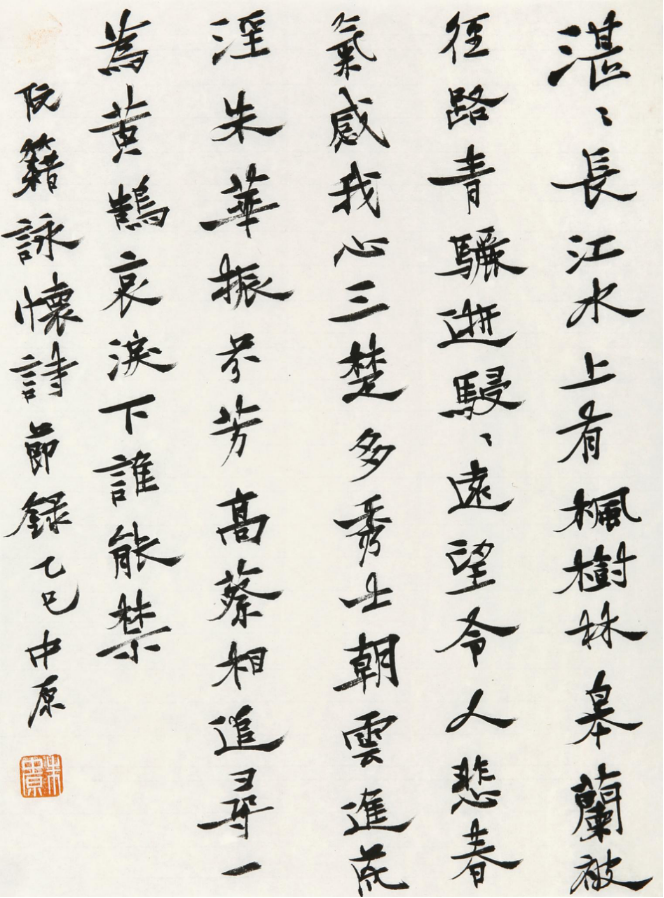 湛〻長江水上有楓樹林皋蘭被
徑路青驪逝駸〻遠望令人悲春
氣感我心三楚多秀士朝雲進荒
淫朱華振芬芳高蔡相追尋一
為黃鵠哀淚下誰能禁
阮籍詠懷詩節錄乙巳中原
朱實